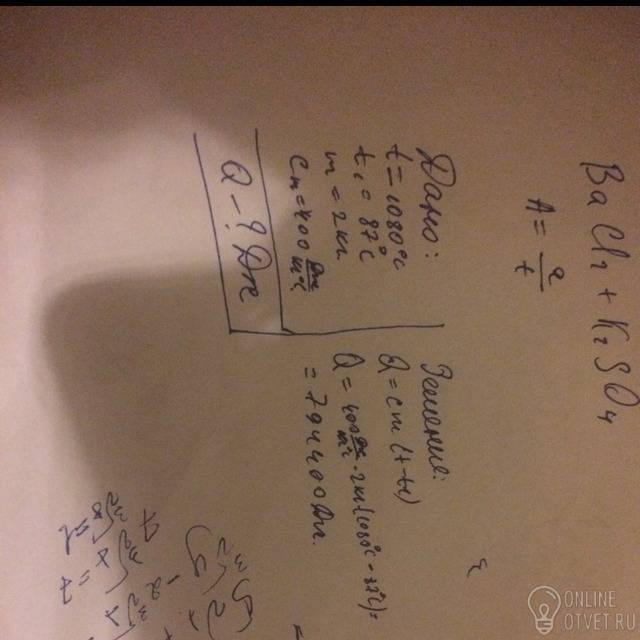 BaCl₂ + K₂SO₄
A = Q/t
Дано:
t = 1080°C
t₁ = 87°C
m = 2 кг
Cм = 400 Дж/кг°С
Q - ? Дж
Решение:
Q = cm (t-t₁)
Q = 400 Дж/кг°С · 2кг (1080°C - 87°C) =
= 794400 Дж.
ONLINE
OTVET.RU